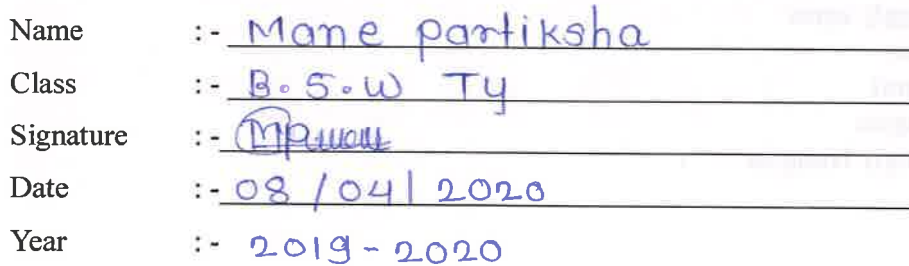 Name :- Mane Partiksha
Class :- B.S.W TY
Signature :-
Date :- 08/04/2020
Year :- 2019-2020